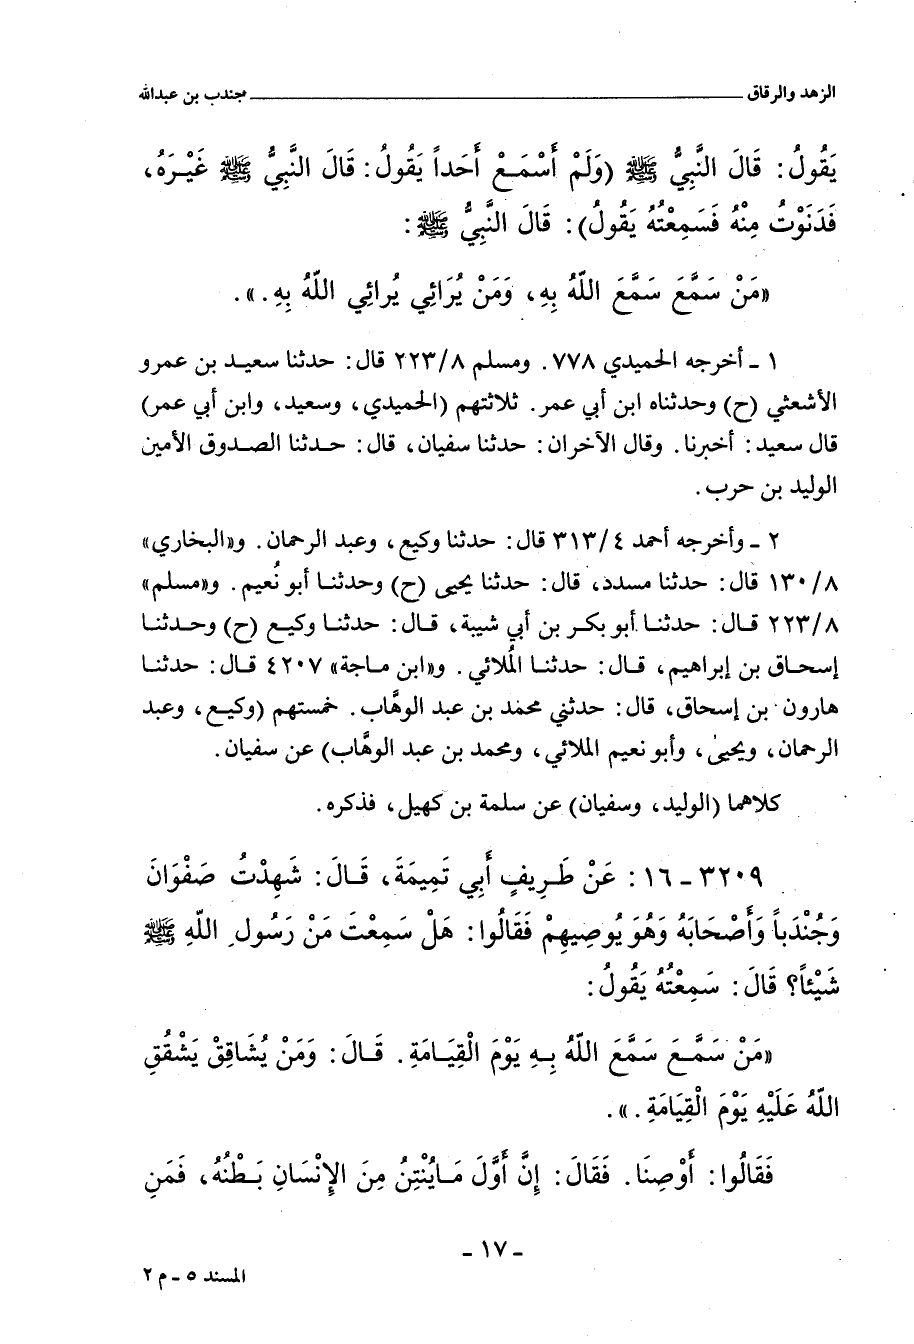 الزهد والرقاق ــــــــــــــــــــ جندب بن عبدالله
يَقُولُ: قَالَ النَّبِيُّ ﷺ (وَلَمْ أَسْمَعْ أَحَداً يَقُولُ: قَالَ النَّبِيُّ ﷺ غَيْرَهُ،
فَدَنَوْتُ مِنْهُ فَسَمِعْتُهُ يَقُولُ): قَالَ النَّبِيُّ ﷺ:
«مَنْ سَمَّعَ سَمَّعَ اللّهُ بِهِ، وَمَنْ يُرَائِي يُرائِي اللّهُ بِهِ.».
١ ـ أخرجه الحميدي ٧٧٨. ومسلم ٢٢٣/٨ قال: حدثنا سعيد بن عمرو
الأشعثي (ح) وحدثناه ابن أبي عمر. ثلاثتهم (الحميدي، وسعيد، وابن أبي عمر)
قال سعيد: أخبرنا. وقال الآخران: حدثنا سفيان، قال: حدثنا الصدوق الأمين
الوليد بن حرب.
٢ ـ وأخرجه أحمد ٣١٣/٤ قال: حدثنا وكيع، وعبد الرحمان. و«البخاري»
١٣٠/٨ قال: حدثنا مسدد، قال: حدثنا يحيى (ح) وحدثنا أبو نُعيم. و«مسلم»
٢٢٣/٨ قال: حدثنا أبو بكر بن أبي شيبة، قال: حدثنا وكيع (ح) وحدثنا
إسحاق بن إبراهيم، قال: حدثنا المُلائي. و«ابن ماجة» ٤٢٠٧ قال: حدثنا
هارون بن إسحاق، قال: حدثني محمد بن عبد الوهَّاب. خمستهم (وكيع، وعبد
الرحمان، ويحيىٰ، وأبو نعيم الملائي، ومحمد بن عبد الوهَّاب) عن سفيان.
كلاهما (الوليد، وسفيان) عن سلمة بن كهيل، فذكره.
٣٢٠٩ ـ ١٦: عَنْ طَرِيفٍ أَبِي تَمِيمَةَ، قَالَ: شَهِدْتُ صَفْوَانَ
وَجُنْدَباً وَأَصْحَابَهُ وَهُوَ يُوصِيهِمْ فَقَالُوا: هَلْ سَمِعْتَ مَنْ رَسُولِ اللّهِ ﷺ
شَيْئاً؟ قَالَ: سَمِعْتُهُ يَقُولُ:
«مَنْ سَمَّعَ سَمَّعَ اللّهُ بِهِ يَوْمَ الْقِيَامَةِ. قَالَ: وَمَنْ يُشَاقِقْ يَشْقُقِ
اللّهُ عَلَيْهِ يَوْمَ الْقِيَامَةِ.».
فَقَالُوا: أَوْصِنَا. فَقَالَ: إِنَّ أَوَّلَ مَايُنْتِنُ مِنَ الإِنْسَانِ بَطْنُهُ، فَمَنِ
ـ ١٧ ـ
المسند ٥ ـ م ٢